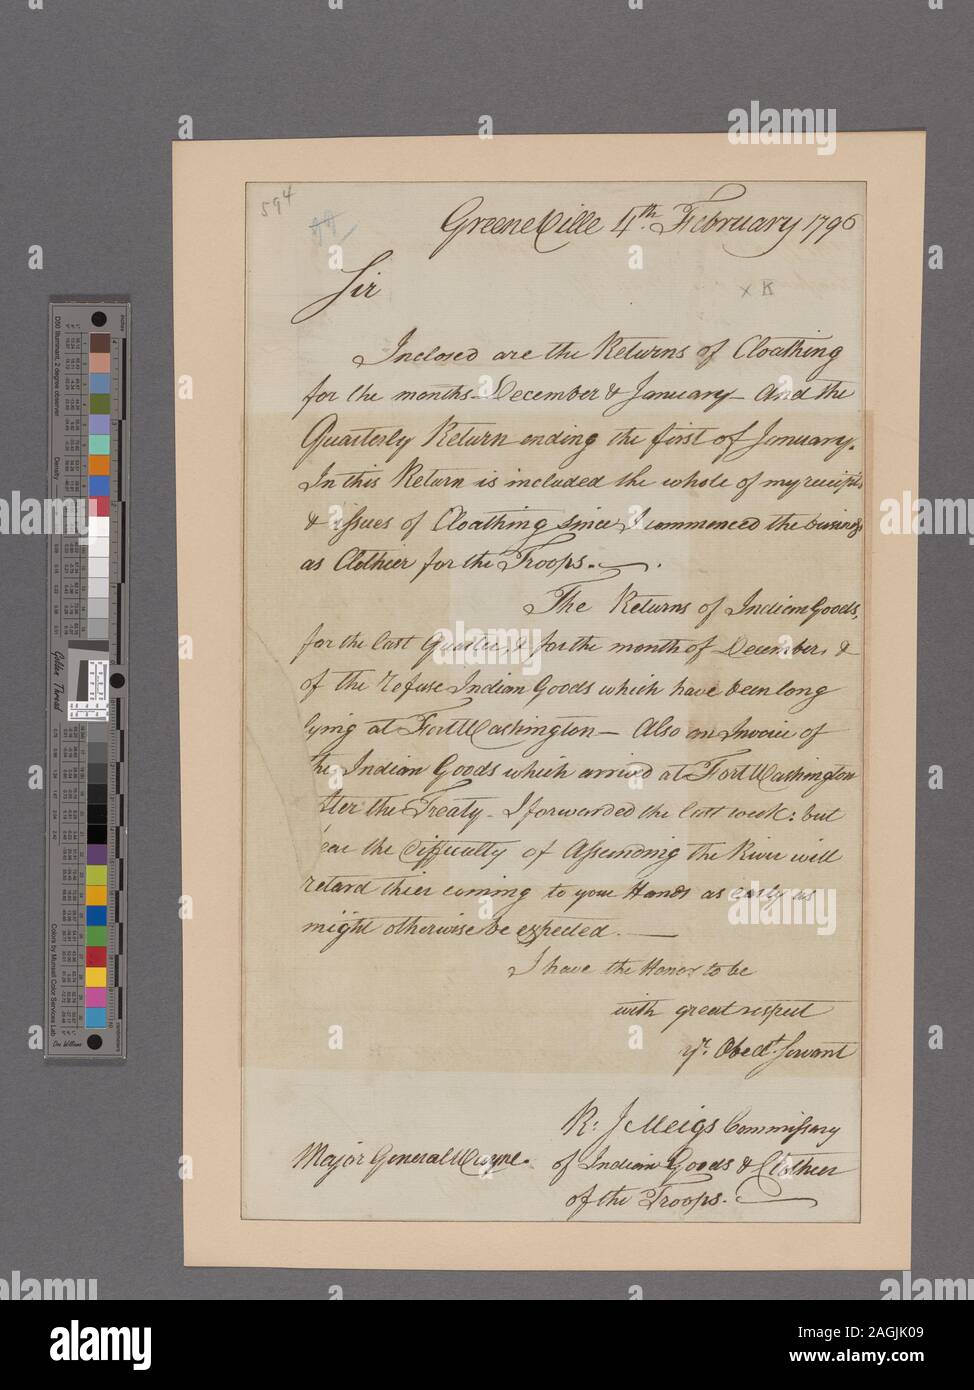 594
GreeneVille 4th. February 1796
Sir
x R
Inclosed are the Returns of Cloathing
for the months December & January and the
Quarterly Return ending the first of January.
In this Return is included the whole of my receipts
& issues of Cloathing since I commenced the business
as Clothier for the Troops.
The Returns of Indian Goods,
for the last Quarter, & for the month of December, &
of the refuse Indian Goods which have been long
lying at Fort Washington — Also an Invoice of
the Indian Goods which arrived at Fort Washington
after the Treaty. I forwarded the last week: but
the difficulty of Ascending the River will
retard thier coming to your Hands as early as
might otherwise be expected. —
I have the Honor to be
with great respect
yr. Obedt. Servant
R: J Meigs Commissary
of Indian Goods & Clothier
of the Troops.
Major General Wayne.
inches
D50 Illuminant, 2 degree observer
Density
Golden Thread
Colors by Munsell Color Services Lab
centimeters
alamy
alamy
alamy
alamy
alamy
alamy
alamy
alamy
alamy
a
alamy
Image ID: 2AGJK09
www.alamy.com